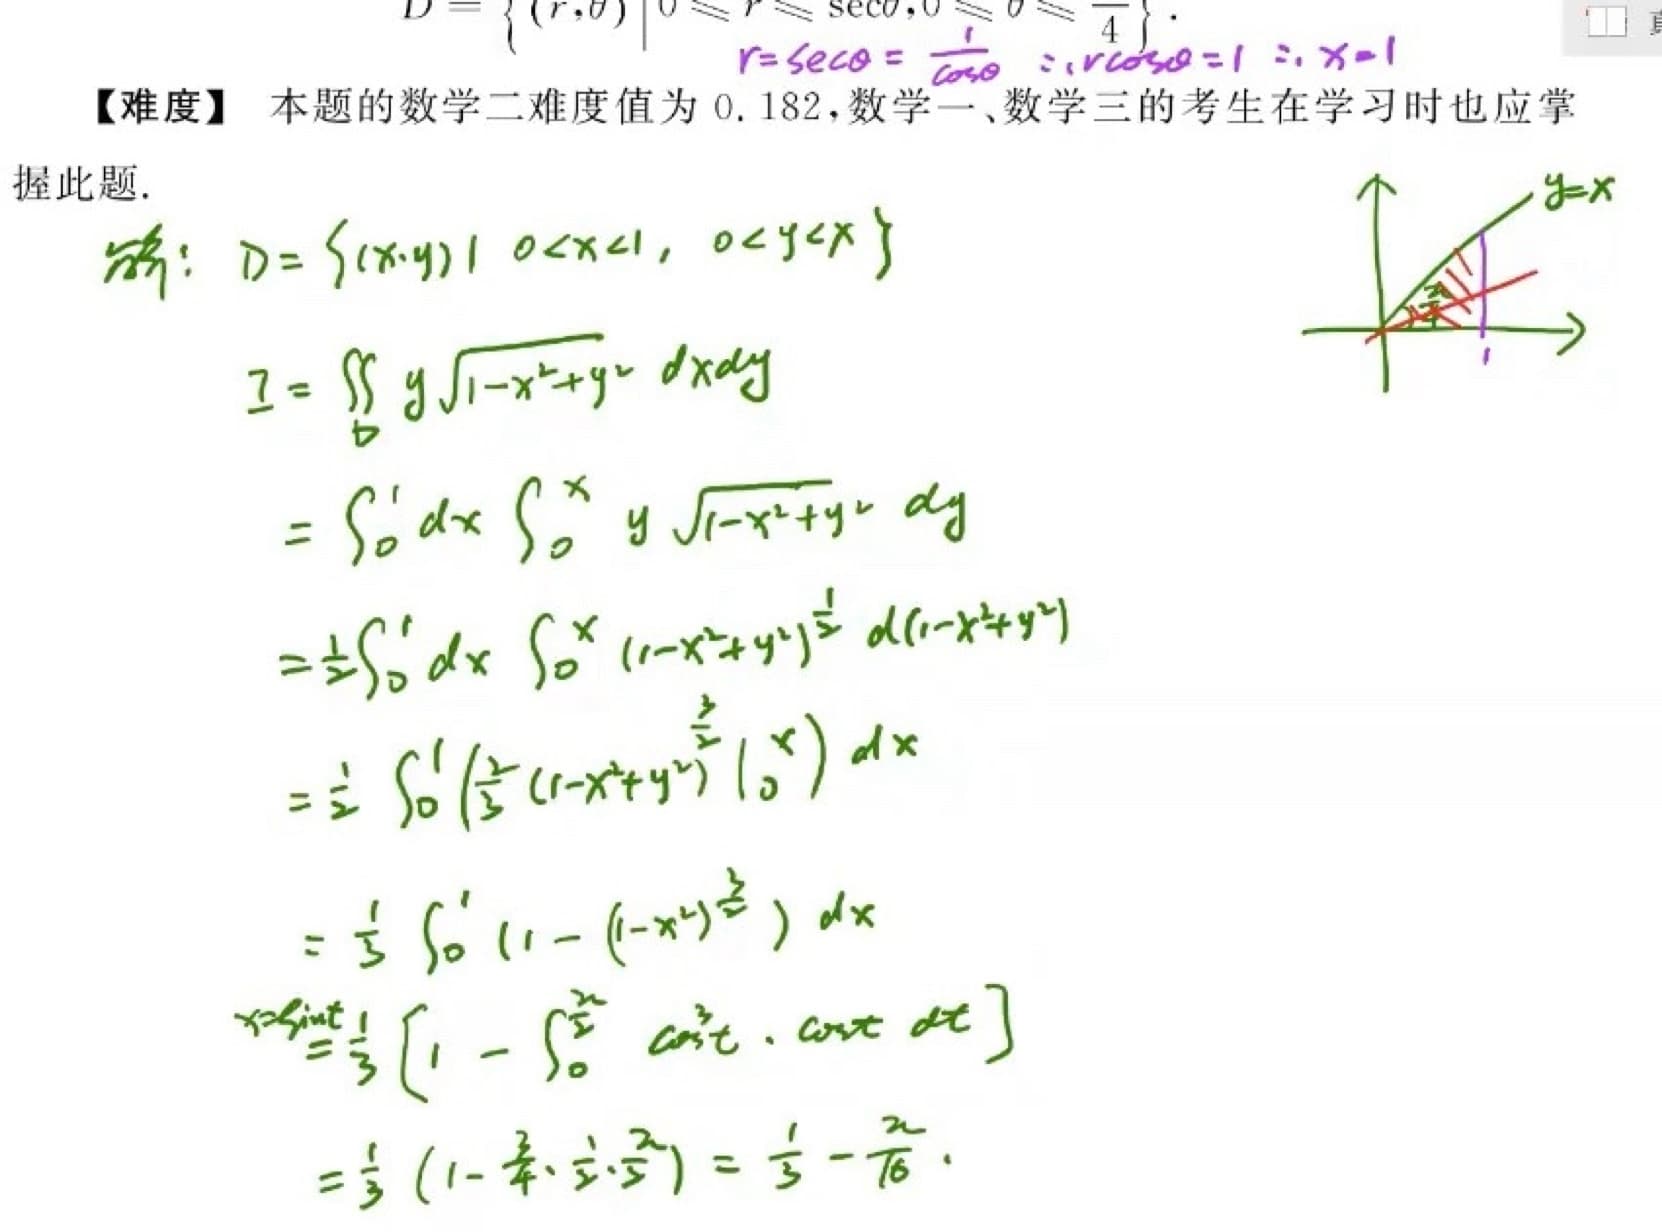 D = {(r,θ) | 0 ⩽ r ⩽ secθ, 0 ⩽ θ ⩽ π/4}.
r=secθ = 1/cosθ ∴ rcosθ=1 ∴ x=1
【难度】 本题的数学二难度值为 0.182,数学一、数学三的考生在学习时也应掌
握此题.
y=x
解: D = {(x,y) | 0<x<1, 0<y<x}
π/4
1
I = ∬_D y√(1-x²+y²) dxdy
= ∫₀¹ dx ∫₀ˣ y √(1-x²+y²) dy
= 1/2 ∫₀¹ dx ∫₀ˣ (1-x²+y²)^(1/2) d(1-x²+y²)
= 1/2 ∫₀¹ (2/3 (1-x²+y²)^(3/2) |₀ˣ) dx
= 1/3 ∫₀¹ (1 - (1-x²)^(3/2)) dx
x=sint = 1/3 [1 - ∫₀^(π/2) cos³t · cost dt]
= 1/3 (1 - 3/4 · 1/2 · π/2) = 1/3 - π/16 .